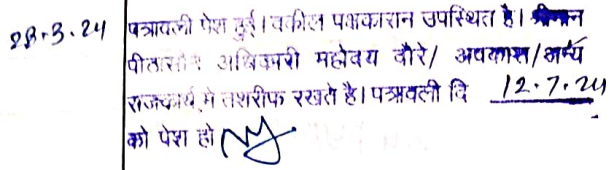 28.3.24 पत्रावली पेश हुई। वकील पक्षकारान उपस्थित है। श्रीमान
पीठासीन अधिकारी महोदय दौरे/ अवकाश/अन्य
राजकार्य में तशरीफ रखते है। पत्रावली दि 12.7.24
को पेश हो